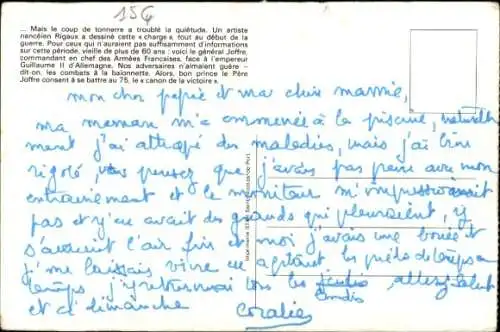 156
... Mais le coup de tonnerre a troublé la quiétude. Un artiste
nancéien Rigaux a dessiné cette « charge », tout au début de la
guerre. Pour ceux qui n'auraient pas suffisamment d'informations
sur cette période, vieille de plus de 60 ans : voici le général Joffre,
commandant en chef des Armées Françaises, face à l'empereur
Guillaume II d'Allemagne. Nos adversaires n'aimaient guère -
dit-on, les combats à la baïonnette. Alors, bon prince le Père
Joffre consent à se battre au 75, le « canon de la victoire ».
mon cher papie et ma chère mammie,
ma maman m'a commencée à la piscine, naturelle
ment j'ai attrapé des maladies, mais j'ai bien
rigolé, vous pensez que j'avais pas peur avec mon
entrainement et le moniteur m'impressionnait
pas et y'en avait des grands qui pleuraient, y
s'avaient l'air fin et moi j'avais une bouée et
j'me laissais vivre en agitant les pieds de temps en
temps j'y retournai tous les jeudis
lundis
allez salut
et à dimanche
Coralie